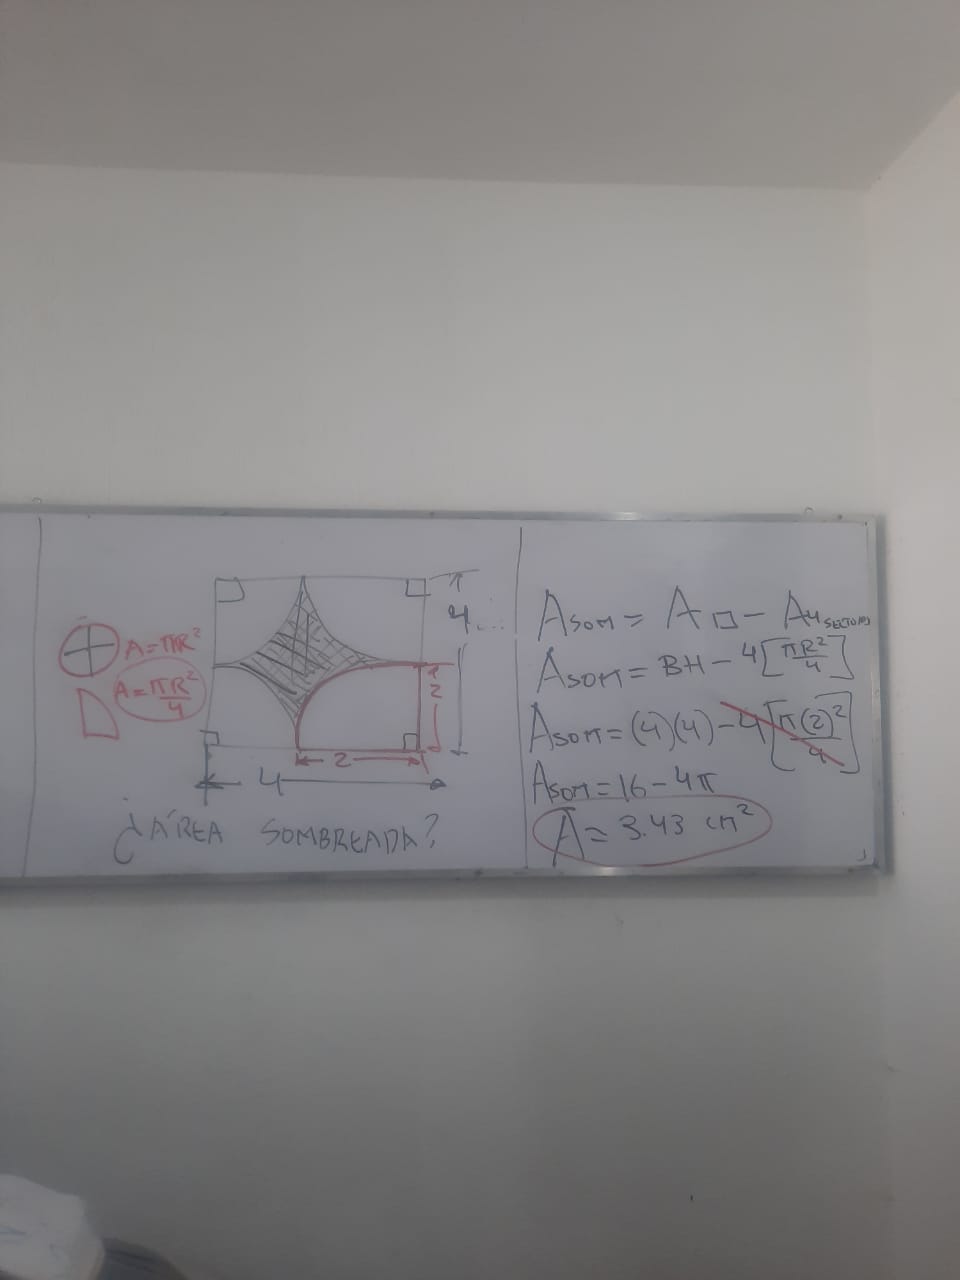 A = πR²
A = πR²/4
4
2
2
4
¿ÁREA SOMBREADA?
Asom = A□ - A4 SECTORES
Asom = BH - 4[πR²/4]
Asom = (4)(4) - 4[π(2)²/4]
Asom = 16 - 4π
A = 3.43 cm²